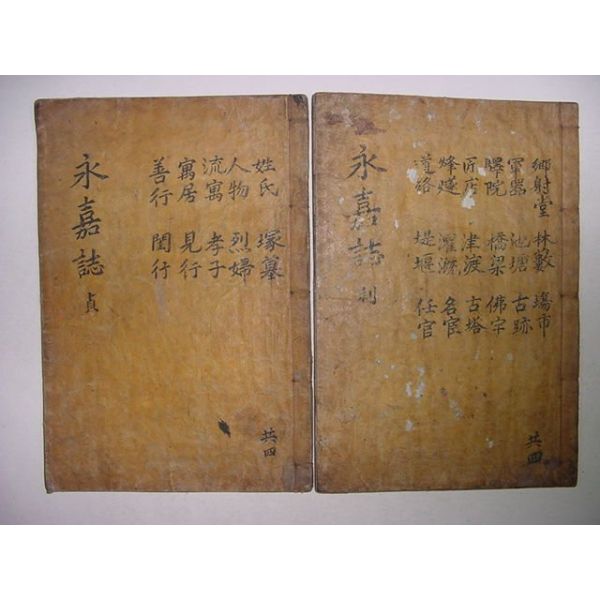 鄉射堂 林藪 塲市
軍器 池塘 古跡
驛院 橋梁 佛宇
匠店 津渡 古塔
烽燧 灌漑 名宦
道路 堤堰 任官
永嘉誌 利
共四
姓氏 塚墓
人物 烈婦
流寓 孝子
寓居 見行
善行 閨行
永嘉誌 貞
共四